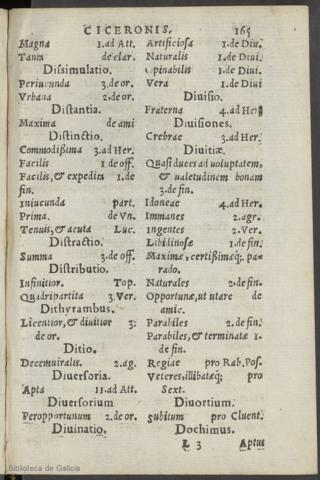 CICERONIS. 165
Magna 1.ad Att.
Tanta de clar.
Dissimulatio.
Periucunda 3.de or.
Vrbana 2.de or.
Distantia.
Maxima de ami
Distinctio.
Commodißima 3.ad Her.
Facilis 1.de off.
Facilis,& expedita 1.de
fin.
Iniucunda part.
Prima. de Vn.
Tenuis,& acuta Luc.
Distractio.
Summa 3.de off.
Distributio.
Infinitior. Top.
Quadripartita 3.Ver.
Dithyrambus.
Licentior,& diuitior 3.
de or.
Ditio.
Decemuiralis. 2.ag.
Diuersoria.
Apta 11.ad Att.
Diuersorium
Peropportunum 2.de or.
Diuinatio.
Artificiosa 1.de Diu.
Naturalis 1.de Diui.
Opinabilis 1.de Diui.
Vera 1.de Diui
Diuisio.
Fraterna 4.ad Her
Diuisiones.
Crebrae 3.ad Her.
Diuitiæ.
Quasi duces ad uoluptatem,
& ualetudinem bonam
3.de fin.
Idoneae 4.ad Her.
Immanes 2.agr.
Ingentes 2.Ver.
Libidinosæ 1.de fin.
Maximæ, certißimæq; pa-
rado.
Naturales 2.de fin.
Opportunæ,ut utare de
amic.
Parabiles 2.de fin.
Parabiles,& terminatæ 1.
de fin.
Regiae pro Rab.Pos.
Veteres,illibatæq; pro
Sext.
Diuortium.
subitum pro Cluent.
Dochimus.
L 3 Aptus
Biblioteca de Galicia